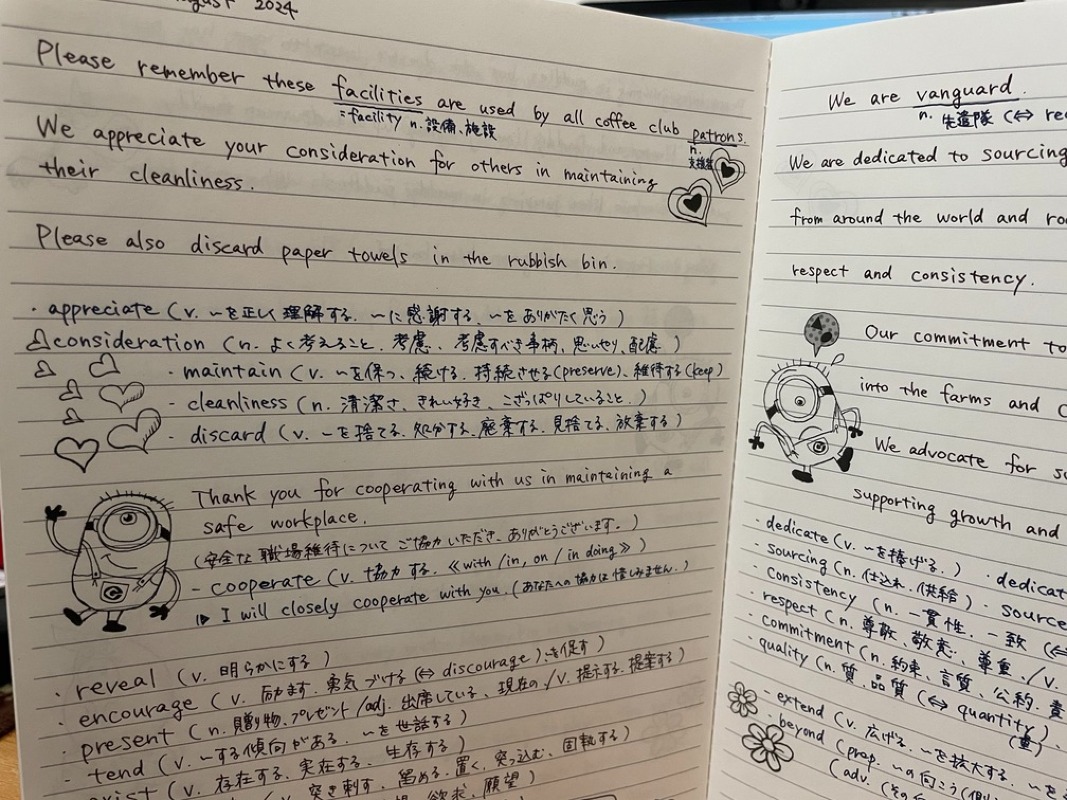 August 2024
Please remember these facilities are used by all coffee club patrons.
= facility n. 設備、施設
n.
支援者
We appreciate your consideration for others in maintaining
their cleanliness.
Please also discard paper towels in the rubbish bin.
・appreciate (v. 〜を正しく理解する. 〜に感謝する. 〜をありがたく思う)
consideration (n. よく考えること、考慮、考慮すべき事柄、思いやり、配慮)
・maintain (v. 〜を保つ、続ける. 持続させる(preserve)、維持する(keep)
- cleanliness (n. 清潔さ、きれい好き、こざっぱりしていること.)
・discard (v. 〜を捨てる. 処分する. 廃棄する. 見捨てる. 放棄する)
Thank you for cooperating with us in maintaining a
safe workplace.
(安全な職場維持についてご協力いただき、ありがとうございます。)
- cooperate (v. 協力する. 《with / in, on / in doing》)
I will closely cooperate with you. (あなたへの協力は惜しみません.)
・reveal (v. 明らかにする)
・encourage (v. 励ます. 勇気づける (⇔ discourage). を促す)
・present (n. 贈り物、プレゼント / adj. 出席している、現在の / v. 提示する. 提案する)
・tend (v. 〜する傾向がある. 〜を世話する)
exist (v. 存在する、実在する、生存する)
突き刺す、留める. 置く、突っ込む、固執する)
欲求、願望)
We are vanguard.
n. 先遣隊 (⇔
We are dedicated to sourcing
from around the world and
respect and consistency.
Our commitment to
into the farms and
We advocate for
supporting growth and
- dedicate (v. 〜を捧げる.) ・
- sourcing (n. 仕込れ. 供給)・
・Consistency (n. 一貫性. 一致 (⇔
respect (n. 尊敬. 敬意. 尊重. / v.
commitment (n. 約束、言質、公約.
quality (n. 質. 品質 (⇔ quantity).
(量)
- extend (v. 広げる. 〜を拡大する.
- beyond (prep. 〜の向こう(側)
(adv.